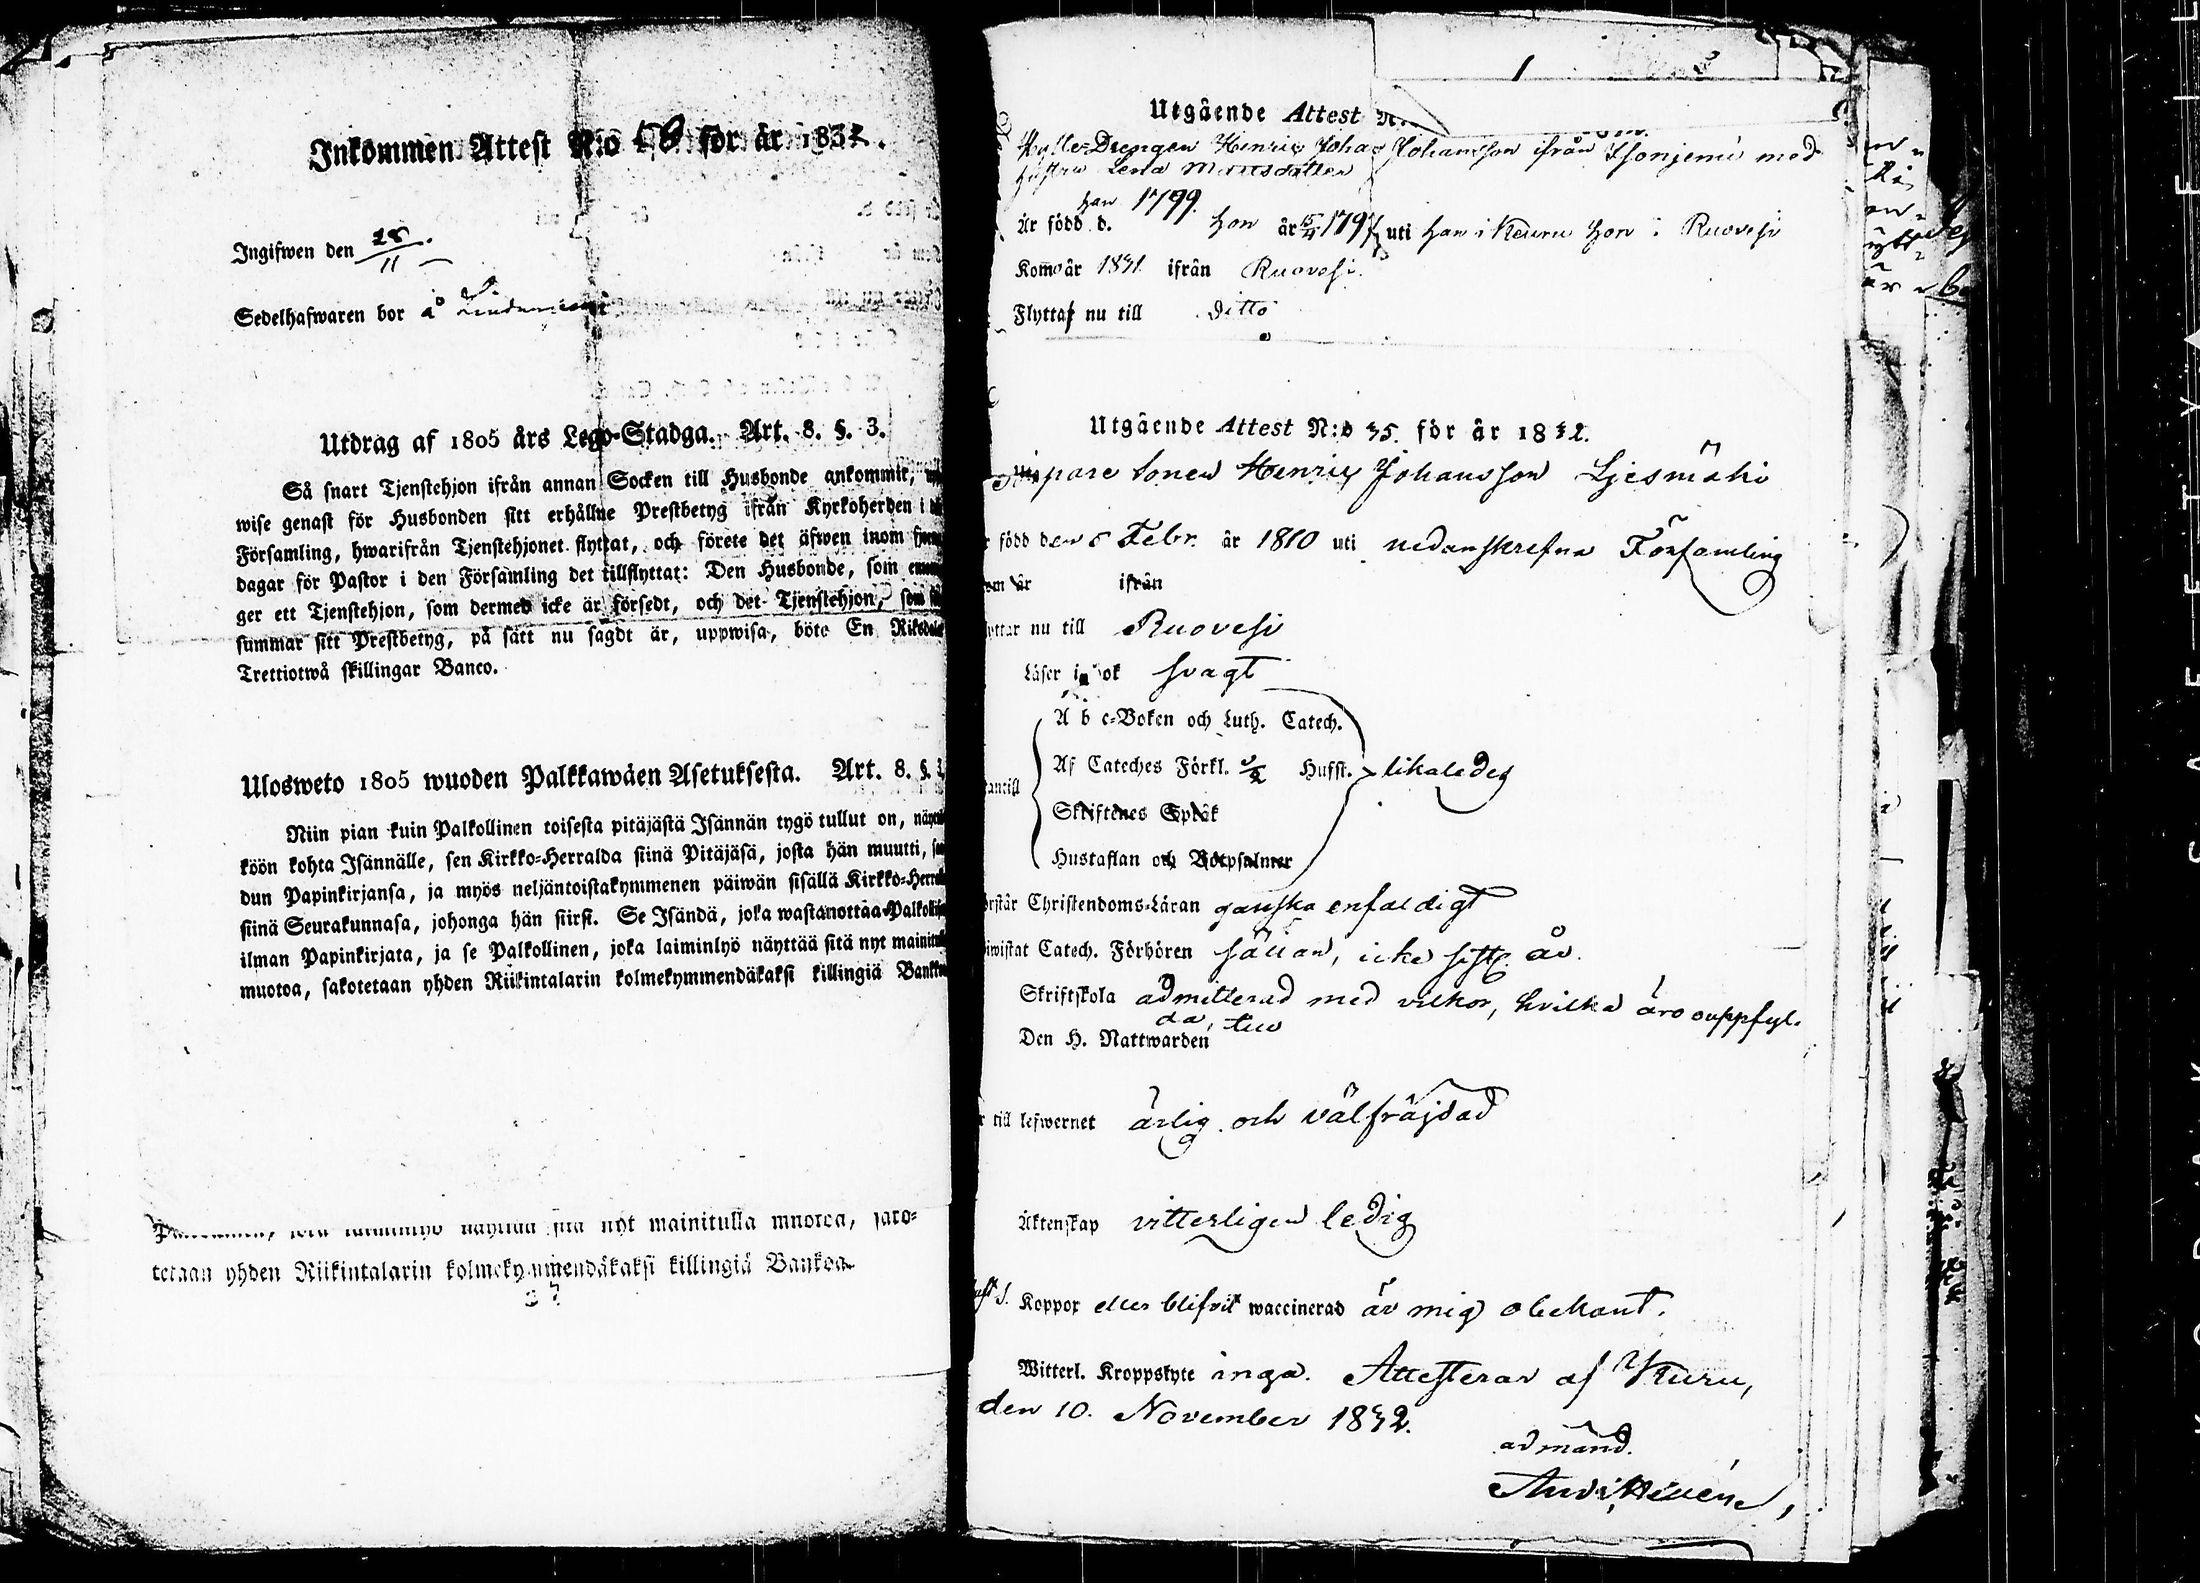 Inkommen Attest N:o 58 för år 1832.
Ingifwen den 28/11
Sedelhafwaren bor å
Utdrag af 1805 års Lego-Stadga. Art. 8. §. 3.
Så snart Tjenstehjon ifrån annan Socken till Husbonde ankommit,
wise genast för Husbonden sitt erhållne Prestbetyg ifrån Kyrkoherden i
Församling, hwarifrån Tjenstehjonet flyttat, och förete det äfwen inom
dagar för Pastor i den Församling det tillflyttat: Den Husbonde, som
ger ett Tjenstehjon, som dermed icke är försedt, och det Tjenstehjon, som
summar sitt Prestbetyg, på sätt nu sagdt är, uppwisa, böte En Riksdaler
Trettiotwå skillingar Banco.
Ulosweto 1805 wuoden Palkkawäen Asetuksesta. Art. 8. §. 3.
Niin pian kuin Palkollinen toisesta pitäjästä Isännän tygö tullut on,
köön kohta Isännälle, sen Kirkko-Herralda siinä Pitäjäsä, josta hän muutti,
dun Papinkirjansa, ja myös neljäntoistakymmenen päiwän sisällä Kirkko-Herralle
siinä Seurakunnasa, johonga hän siirst. Se Isändä, joka wastanottaa Palkollisen
ilman Papinkirjata, ja se Palkollinen, joka laiminlyö näyttää sitä nyt mainitulla
muotoa, sakotetaan yhden Riikintalarin kolmekymmendäkaksi killingiä Bankoa
nyt mainitulla muotoa, sako-
tetaan yhden Riikintalarin kolmekymmendäkaksi killingiä Bankoa.
1
Utgående Attest N:
Drengen Henric Johan Johansson ifrån med
hustru Lena Mattsdotter
han 1799.
Är född d. hon är 15/4 179 uti han i Keuru hon i Ruovesi
Kom år 1831 ifrån Ruovesi.
Flyttar nu till Ditto
Utgående Attest N:o 35. för år 1832.
sonen Henric Johansson Ljesmäki
född den 5 Febr. år 1810 uti nedanskrefna Församling
om år ifrån
yttar nu till Ruovesi
Läser i bok svagt
A b c-Boken och Luth. Catech.
Af Cateches Förkl. Husst. likaledes
antill
Skriftenes Språk
Hustaflan och Botpsalmer
örstår Christendoms-Läran ganska enfaldigt
iwistat Catech. Förhören sällan, icke sistl. år.
Skriftskola admitterad med vilkor, hvilka äro ouppfyl-
da,
Den H. Nattwarden
r till lefwernet ärlig och välfräjdad
Äktenskap vitterligen ledig
haft s. Koppor eller blifvit waccinerad är mig obekant.
Witterl. Kroppslyte inga. Attesterar af Kuru,
den 10. November 1832.
ad mand.